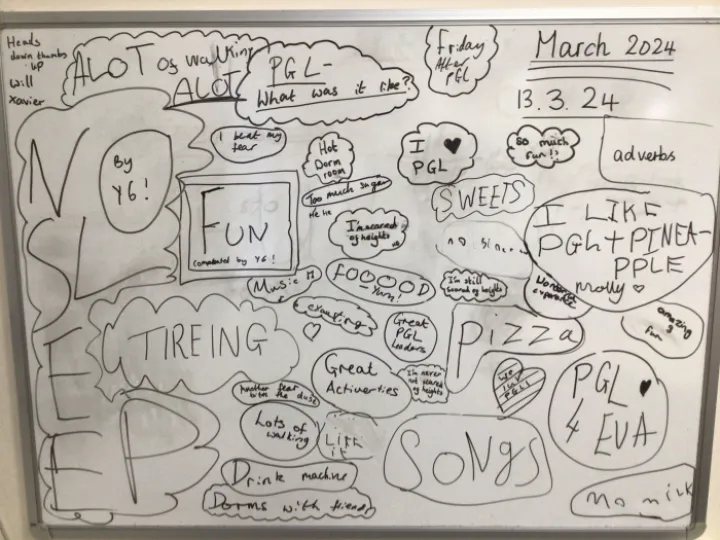 Heads
down thumbs
up
Will
Xavier
ALOT of walking
ALOT
PGL-
What was it like?
Friday
After
PGL
March 2024
13.3.24
adverbs
NO
SL
E
EP
By
Y6!
I beat my
fear
FUN
completed by Y6!
Hot
Dorm
room
Too much sugar
He He
I'm scared
of heights
I ♥
PGL
So much
fun!!
SWEETS
I LIKE
PGL + PINEA-
PPLE
molly ♡
Music
FOOOOD
Yum!
I'm still
scared of heights
amazing
fun
TIREING
exhausting
Great
PGL
leaders
pizza
Great
Activerties
I'm never
not scared
of heights
PGL ♥
4 EVA
Another fear
bites the dust
Lots of
walking
SONGS
Drink machine
Dorms with friends
No milk